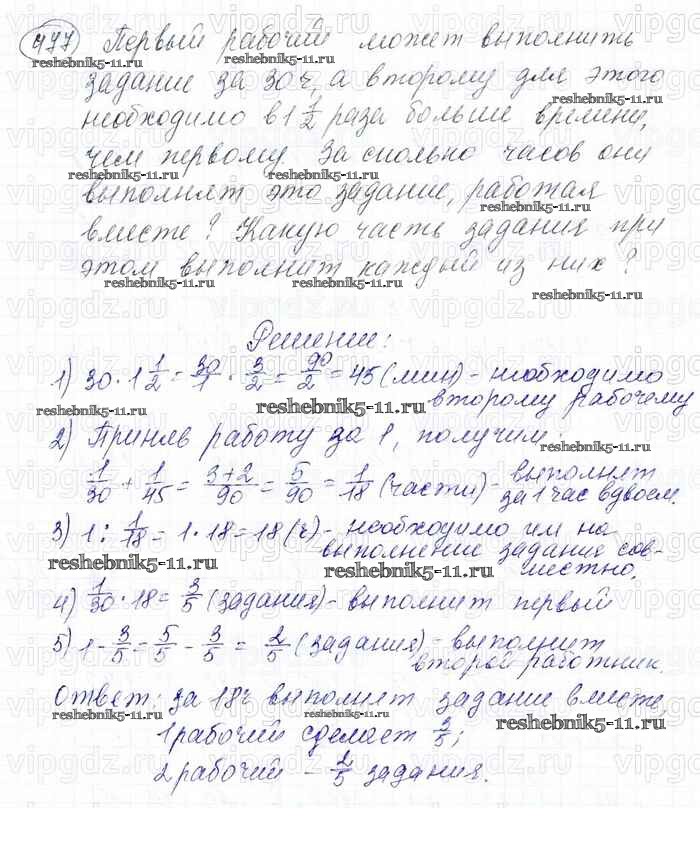 477) Первый рабочий может выполнить
задание за 30 ч, а второму для этого
необходимо в 1 1/2 раза больше времени,
чем первому. За сколько часов они
выполнят это задание, работая
вместе? Какую часть задания при
этом выполнит каждый из них?
Решение:
1) 30 · 1 1/2 = 30/1 · 3/2 = 90/2 = 45 (мин) - необходимо
второму рабочему
2) Приняв работу за 1, получим,
1/30 + 1/45 = (3+2)/90 = 5/90 = 1/18 (части) - выполнят
за 1 час вдвоем.
3) 1 : 1/18 = 1 · 18 = 18 (ч) - необходимо им на
выполнение задания сов-
местно.
4) 1/30 · 18 = 3/5 (задания) - выполнит первый
5) 1 - 3/5 = 5/5 - 3/5 = 2/5 (задания) - выполнит
второй работник.
Ответ: за 18 ч выполнят задание вместе,
1 рабочий сделает 3/5;
2 рабочий - 2/5 задания.
reshebnik5-11.ru
vipgdz.ru